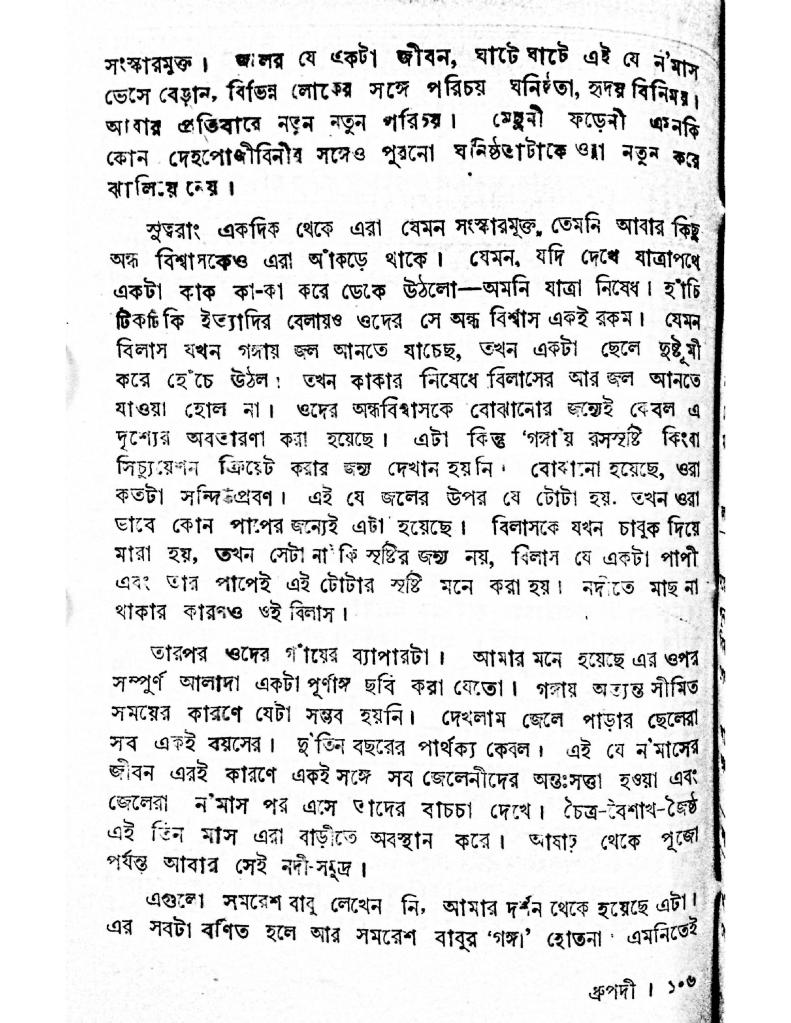 সংস্কারমুক্ত। জলের যে একটা জীবন, ঘাটে ঘাটে এই যে ন'মাস
ভেসে বেড়ান, বিভিন্ন লোকের সঙ্গে পরিচয় ঘনিষ্ঠতা, হৃদয় বিনিময়।
আবার প্রতিবারে নতুন নতুন পরিচয়। মেছুনী ফড়েনী এমনকি
কোন দেহপোজীবিনীর সঙ্গেও পুরনো ঘনিষ্ঠতাটাকে ওরা নতুন করে
ঝালিয়ে নেয়।
সুতরাং একদিক থেকে এরা যেমন সংস্কারমুক্ত, তেমনি আবার কিছু
অন্ধ বিশ্বাসকেও এরা আঁকড়ে থাকে। যেমন, যদি দেখে যাত্রাপথে
একটা কাক কা-কা করে ডেকে উঠলো—অমনি যাত্রা নিষেধ। হাঁচি
টিকটিকি ইত্যাদির বেলায়ও ওদের সে অন্ধ বিশ্বাস একই রকম। যেমন
বিলাস যখন গঙ্গায় জল আনতে যাচ্ছে, তখন একটা ছেলে দুষ্টুমী
করে হেঁচে উঠল। তখন কাকার নিষেধে বিলাসের আর জল আনতে
যাওয়া হোল না। ওদের অন্ধবিশ্বাসকে বোঝানোর জন্যেই কেবল এ
দৃশ্যের অবতারণা করা হয়েছে। এটা কিন্তু 'গঙ্গা'য় রসসৃষ্টি কিংবা
সিচ্যুয়েশন ক্রিয়েট করার জন্য দেখান হয়নি। বোঝানো হয়েছে, ওরা
কতটা সন্দিগ্ধপ্রবণ। এই যে জলের উপর যে টোটা হয়. তখন ওরা
ভাবে কোন পাপের জন্যেই এটা হয়েছে। বিলাসকে যখন চাবুক দিয়ে
মারা হয়, তখন সেটা নাকি সৃষ্টির জন্য নয়, বিলাস যে একটা পাপী
এবং তার পাপেই এই টোটার সৃষ্টি মনে করা হয়। নদীতে মাছ না
থাকার কারণও ওই বিলাস।
তারপর ওদের গাঁয়ের ব্যাপারটা। আমার মনে হয়েছে এর ওপর
সম্পুর্ণ আলাদা একটা পূর্ণাঙ্গ ছবি করা যেতো। গঙ্গায় অত্যন্ত সীমিত
সময়ের কারণে যেটা সম্ভব হয়নি। দেখলাম জেলে পাড়ার ছেলেরা
সব একই বয়সের। দু'তিন বছরের পার্থক্য কেবল। এই যে ন'মাসের
জীবন এরই কারণে একই সঙ্গে সব জেলেনীদের অন্তঃসত্তা হওয়া এবং
জেলেরা ন'মাস পর এসে তাদের বাচচা দেখে। চৈত্র-বৈশাখ-জৈষ্ঠ
এই তিন মাস এরা বাড়ীতে অবস্থান করে। আষাঢ় থেকে পূজো
পর্যন্ত আবার সেই নদী-সমুদ্র।
এগুলো সমরেশ বাবু লেখেন নি, আমার দর্শন থেকে হয়েছে এটা।
এর সবটা বর্ণিত হলে আর সমরেশ বাবুর 'গঙ্গা' হোতনা এমনিতেই
ধ্রুপদী। ১০৬